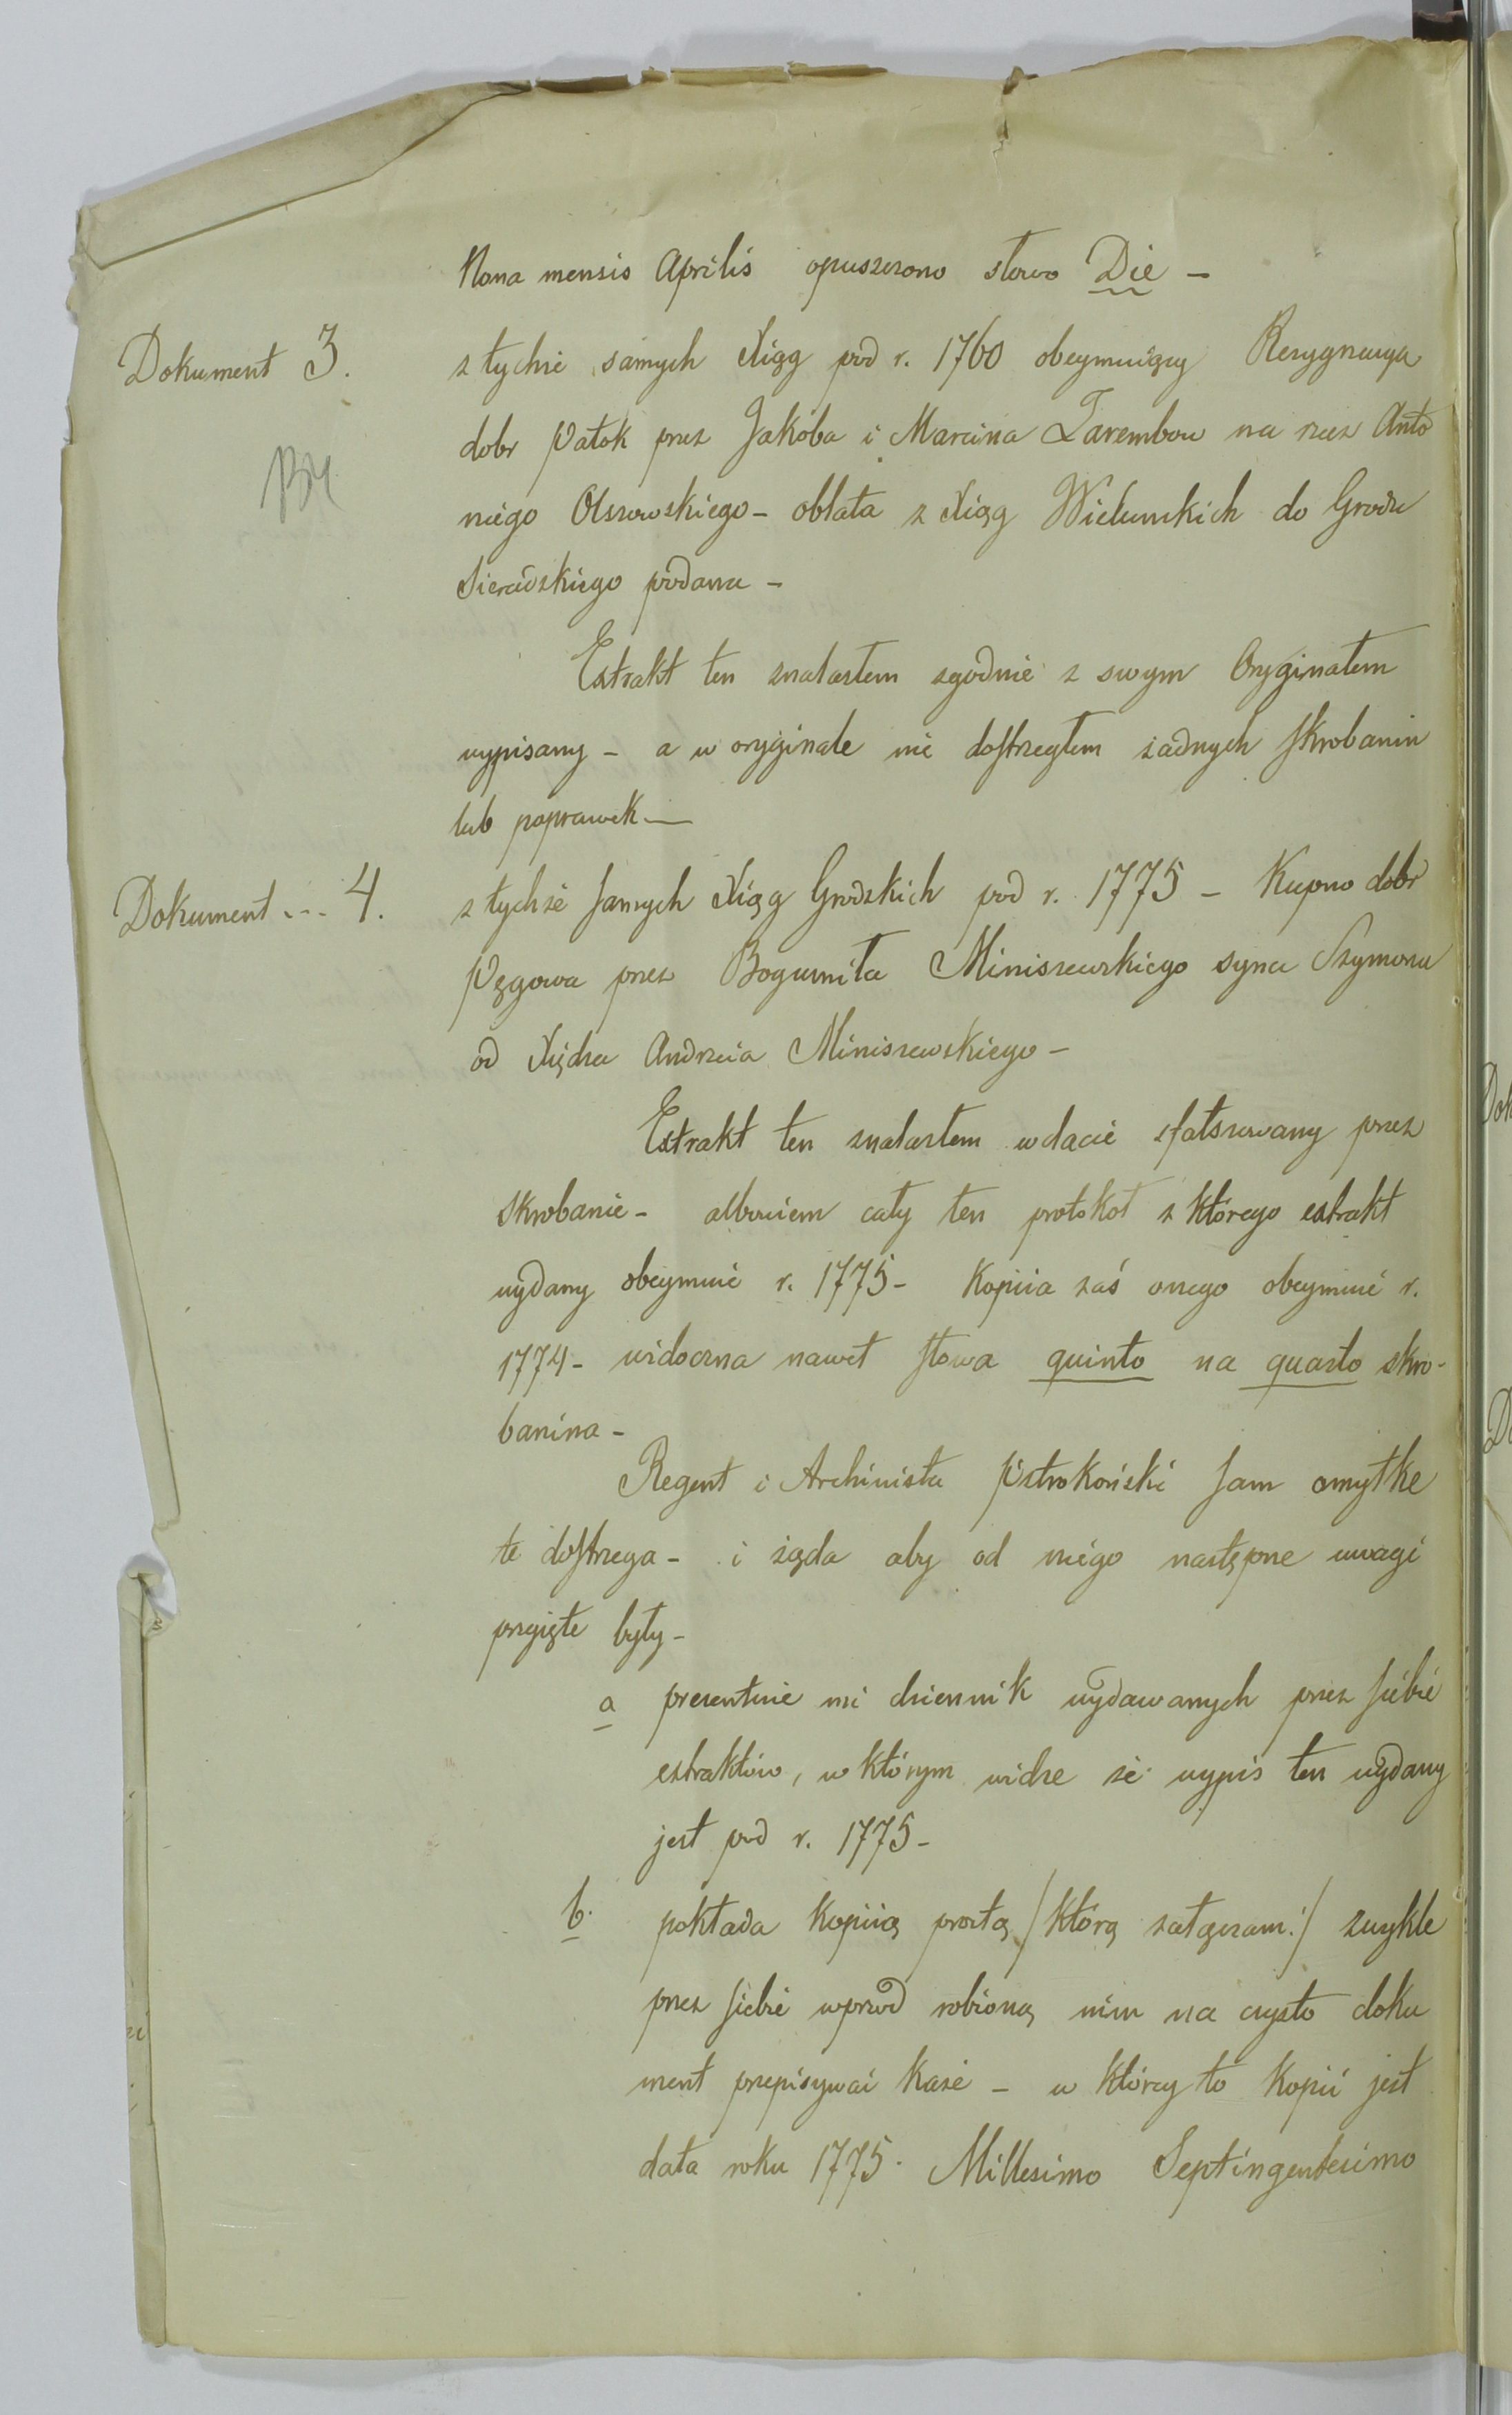 Nona mensis Aprilis opuszczono słowo Die -
Dokument 3. z tychże samych Xiąg pod r. 1760 obeymuiący Rezygnacya
dobr Patok przez Jakóba i Marcina Zarembow na rzecz Anto
niego Olszowskiego - oblata z Xiąg Wieluńskich do Grodu
Sieradzkiego podana -
Extrakt ten znalazłem zgodnie z swym Oryginałem
wypisany - a w oryginale nie dostrzegłem żadnych skrobanin
lub poprawek -
Dokument ... 4. z tychże samych Xiąg Grodzkich pod r. 1775 - Kupno dobr
Pęgowa przez Bogumiła Miniszewskiego syna Szymona
od Xiędza Andrzeia Miniszewskiego -
Extrakt ten znalazłem w dacie sfałszowany przez
skrobanie - albowiem cały ten protokoł z którego extrakt
wydany obeymuie r. 1775 - Kopiia zaś onego obeymuie r.
1774 - widoczna nawet słowa quinto na quarto skro-
banina -
Regent i Archivista Pstrokoński sam omyłke
te dostrzega - i żąda aby od niego następne uwagi
przyięte były -
a prezentuie mi dziennik wydawanych przez siebie
extraktów, w którym widze że wypis ten wydany
jest pod r. 1775 -
b. pokłada kopiią prostą /którą załączam:/ zwykle
przez siebie wprzod robioną nim na czysto doku
ment przepisywać każe - w którey to kopii jest
data roku 1775. Millesimo Septingentesimo